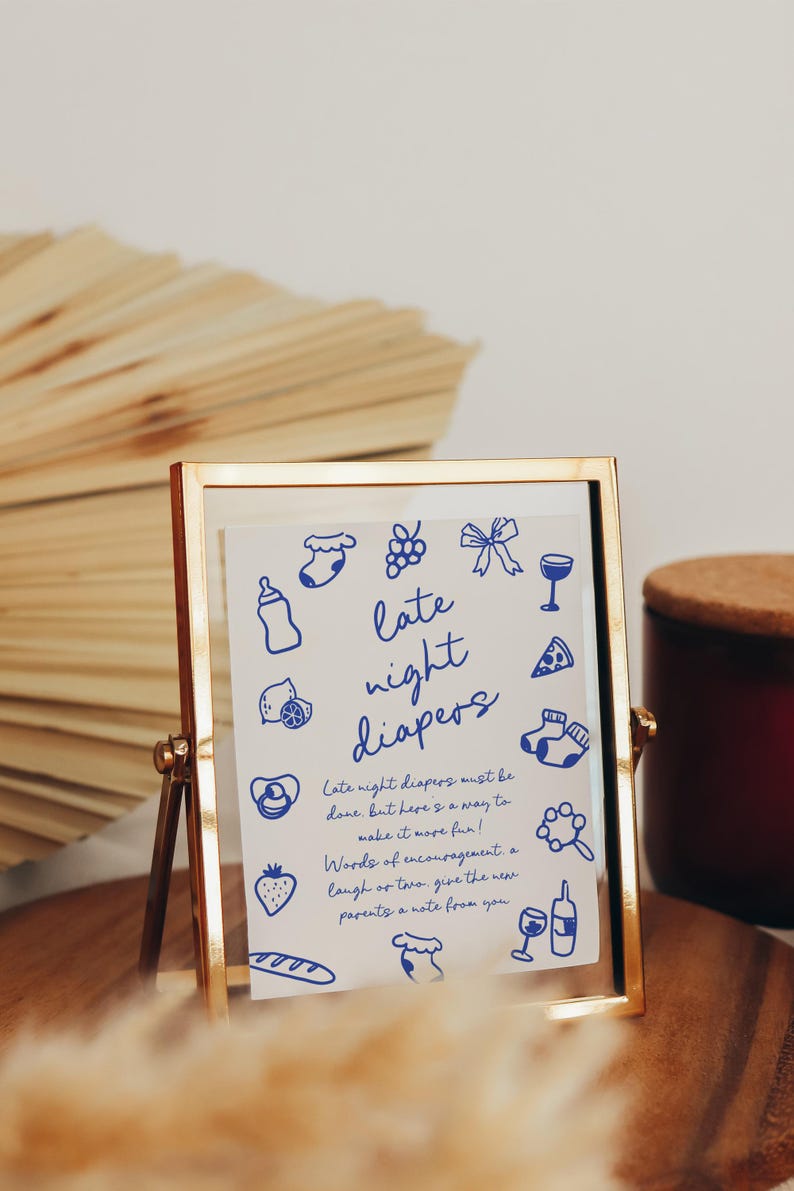 late
night
diapers
Late night diapers must be
done, but here's a way to
make it more fun!
Words of encouragement, a
laugh or two, give the new
parents a note from you